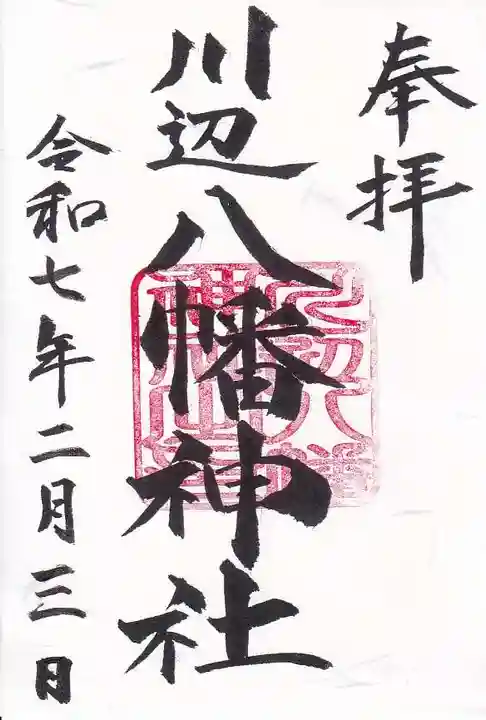 奉拝
川辺八幡神社
令和七年二月三日